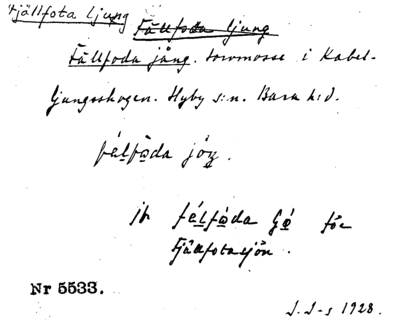 Fjällfota ljung
Fällfoda ljung
Fällfoda jång. torvmosse i Kabel-
ljungaskogen. Hyby s:n. Bara h:d.
félfòda jóŋ.
jfr félfòda Gǿ för
Fjällfotasjön.
Nr 5533.
J. J-s 1928.